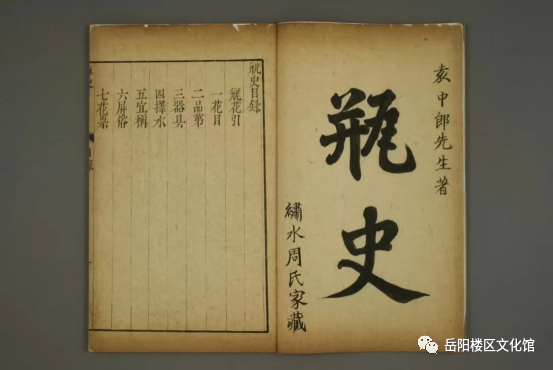 袁中郎先生著
瓶史
繡水周氏家藏
瓶史目錄
瓶花引
一花目
二品第
三器具
四擇水
五宜稱
六屏俗
七花祟
岳阳楼区文化馆